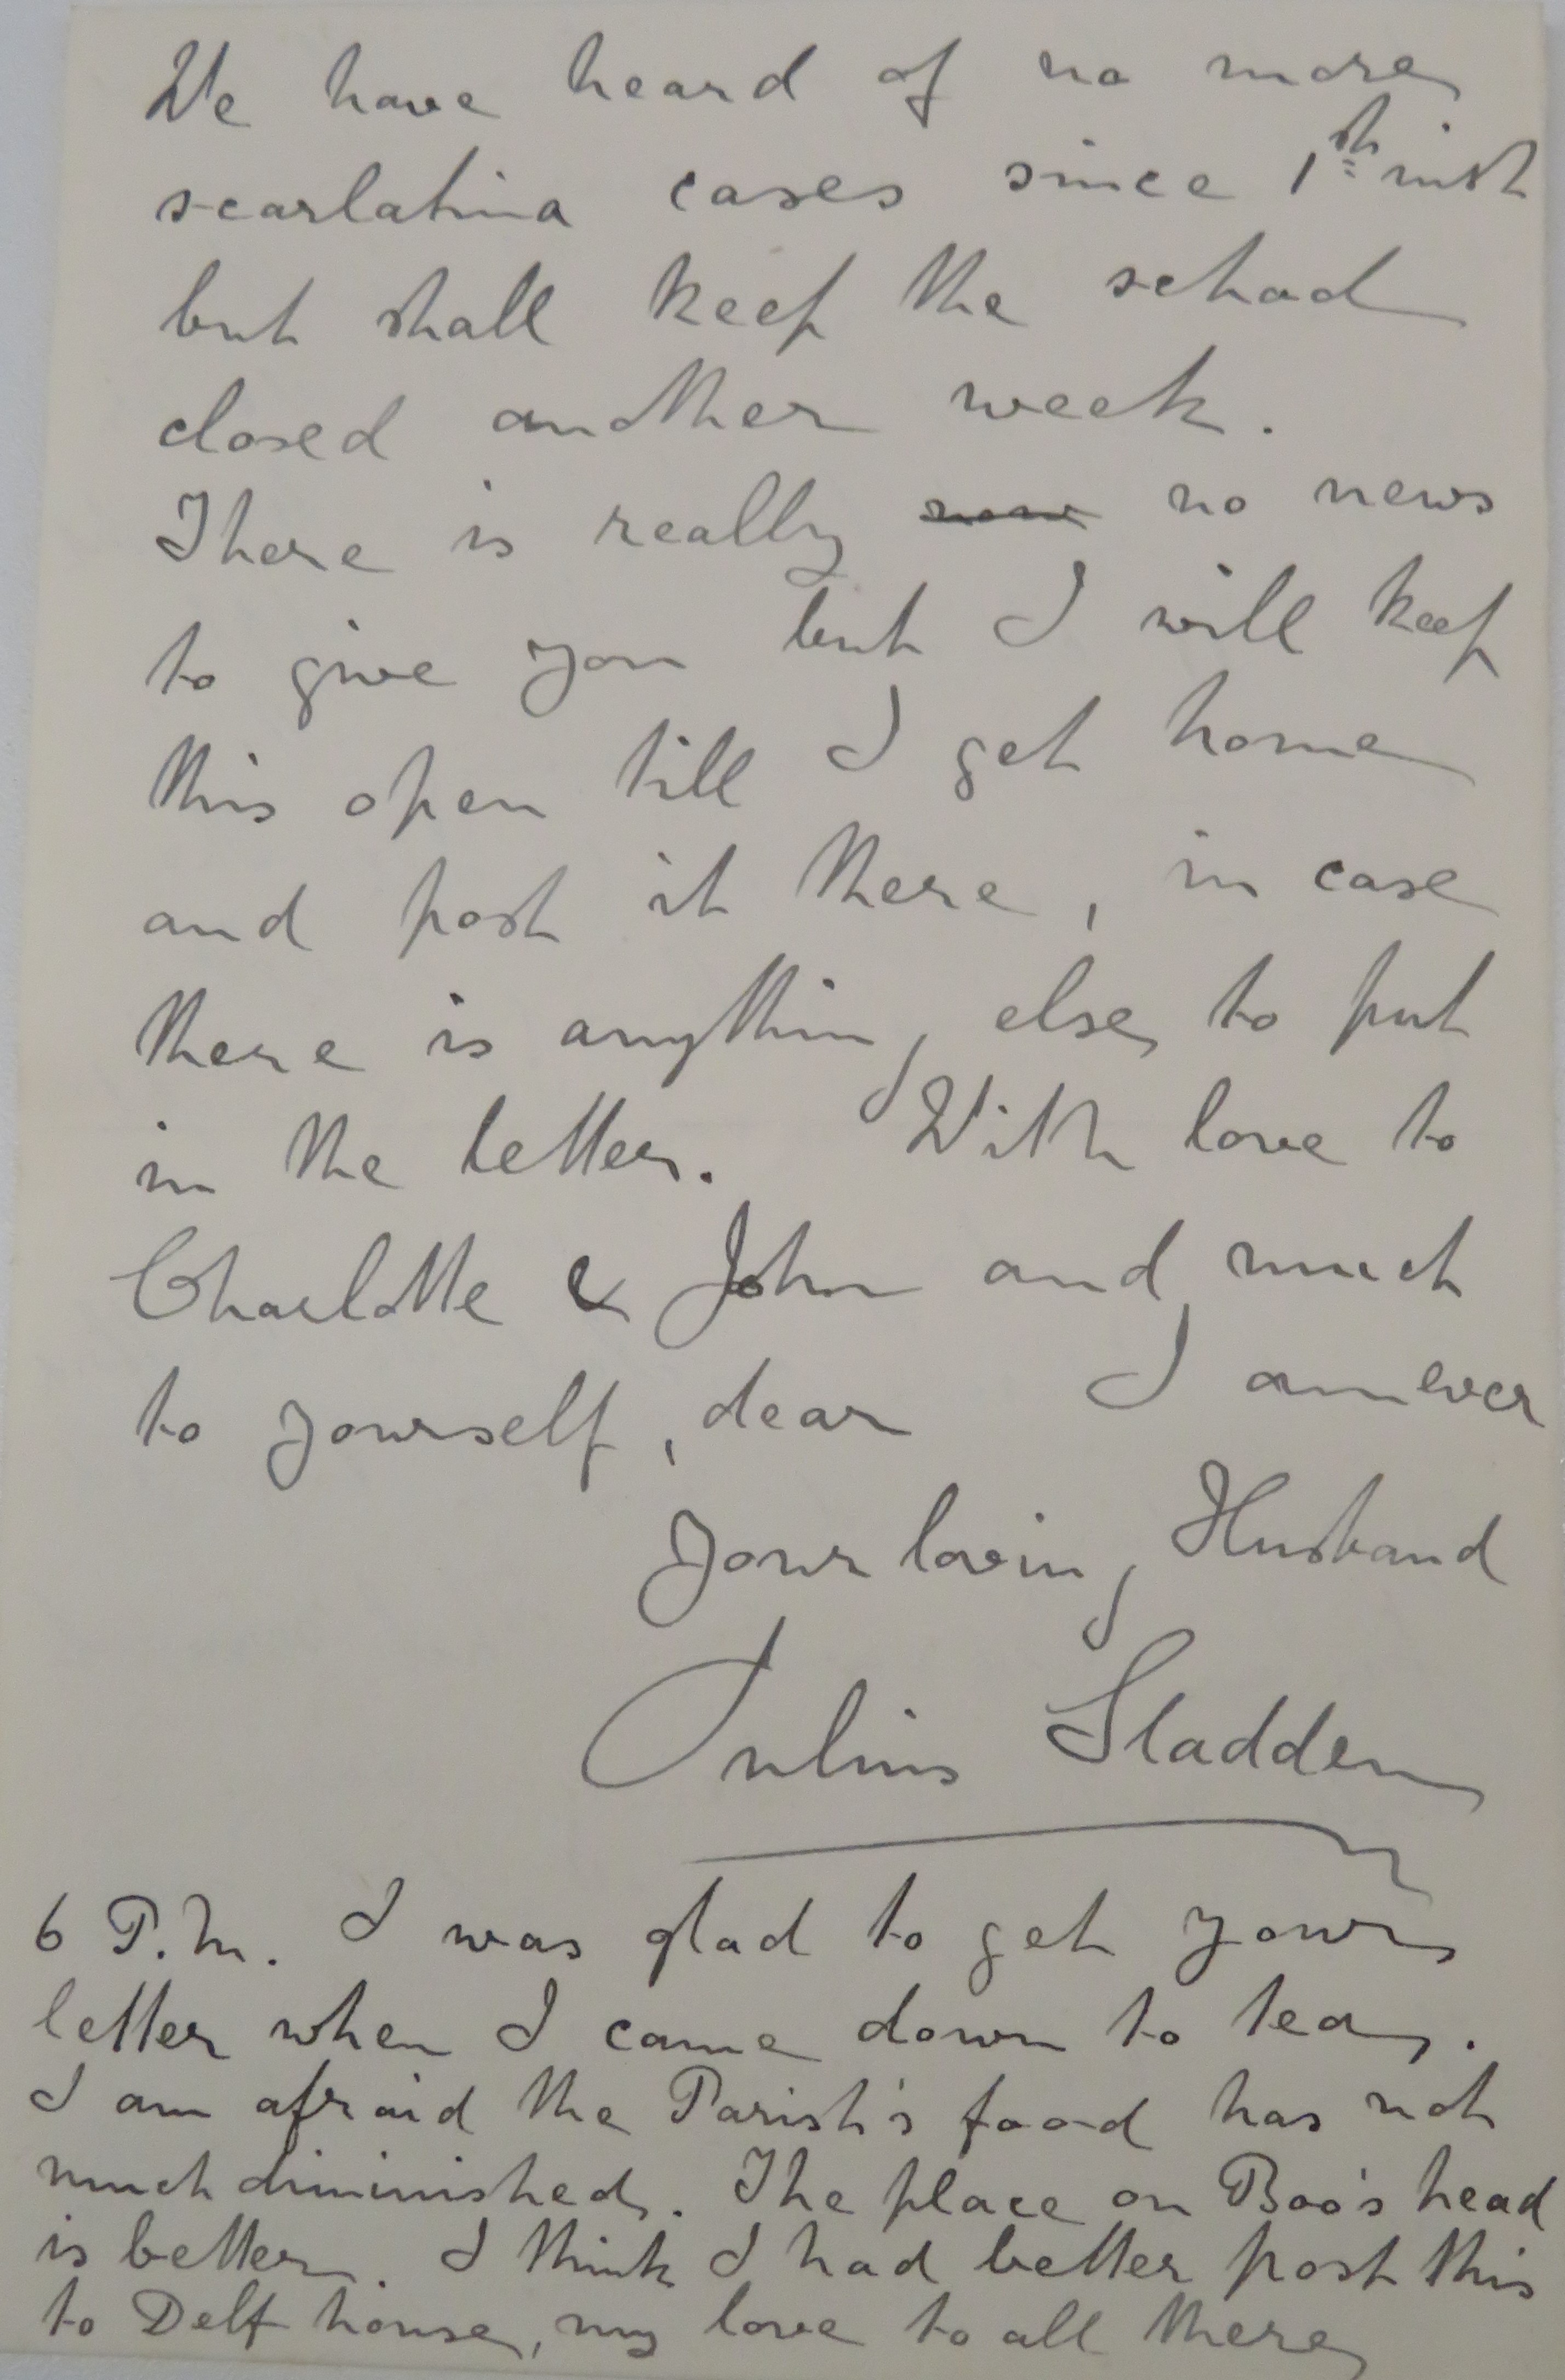 We have heard of no more
scarlatina cases since 1st inst
but shall keep the school
closed another week.
There is really no news
to give you but I will keep
this open till I get home
and post it there, in case
there is anything else to put
in the letter. With love to
Charlotte & John and much
to yourself, dear I am ever
Your loving Husband
Julius Sladden
6 P.M. I was glad to get your
letter when I came down to tea.
I am afraid the Parish's food has not
much diminished. The place on Boo's head
is better. I think I had better post this
to Delf house, my love to all there